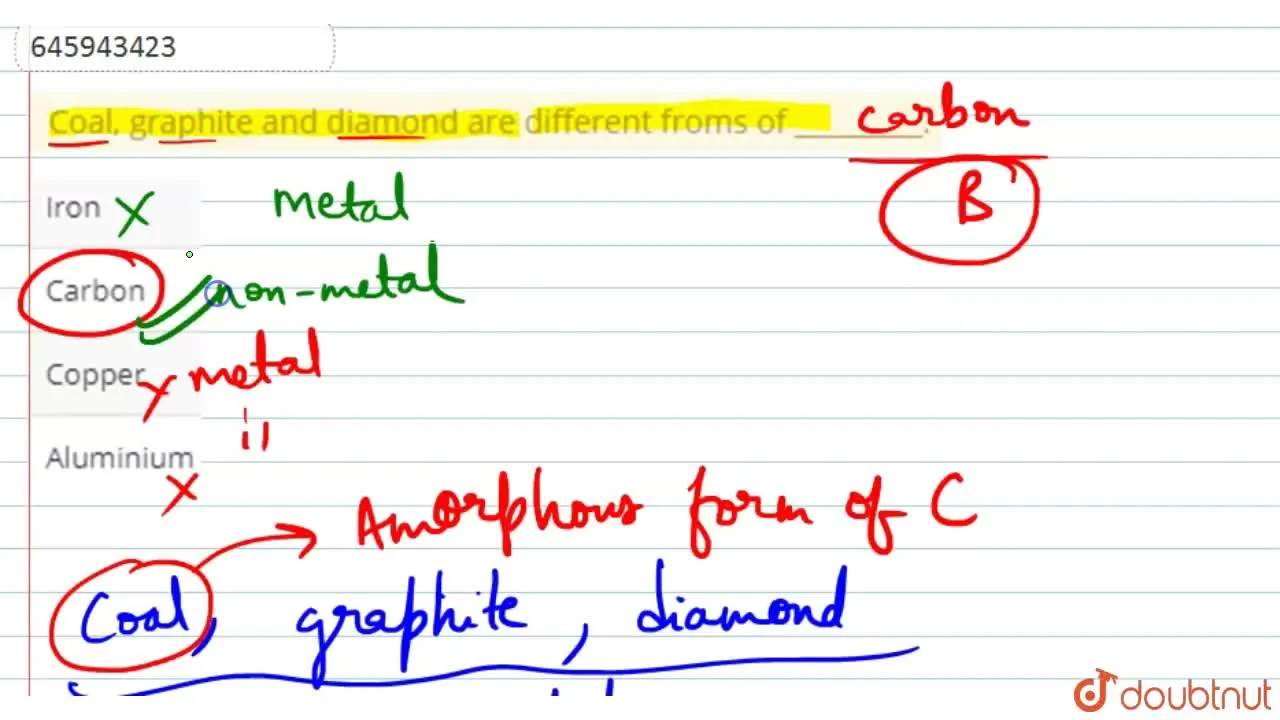 645943423
Coal, graphite and diamond are different froms of __________. carbon
B
Iron X metal
Carbon non-metal
Copper X metal
Aluminium X
Amorphous form of C
Coal, graphite, diamond
doubtnut